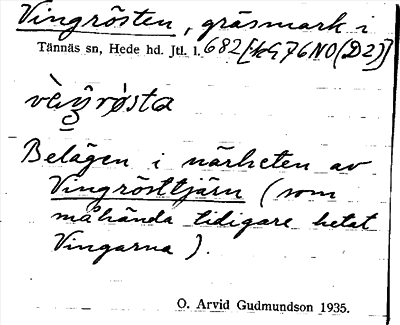 Vingrösten, gräsmark i
Tännäs sn, Hede hd. Jtl. l. 682 [kG 76NO (D2)]
Belägen i närheten av
Vingrösttjärn (som
måhända tidigare hetat
Vingarna).
O. Arvid Gudmundson 1935.